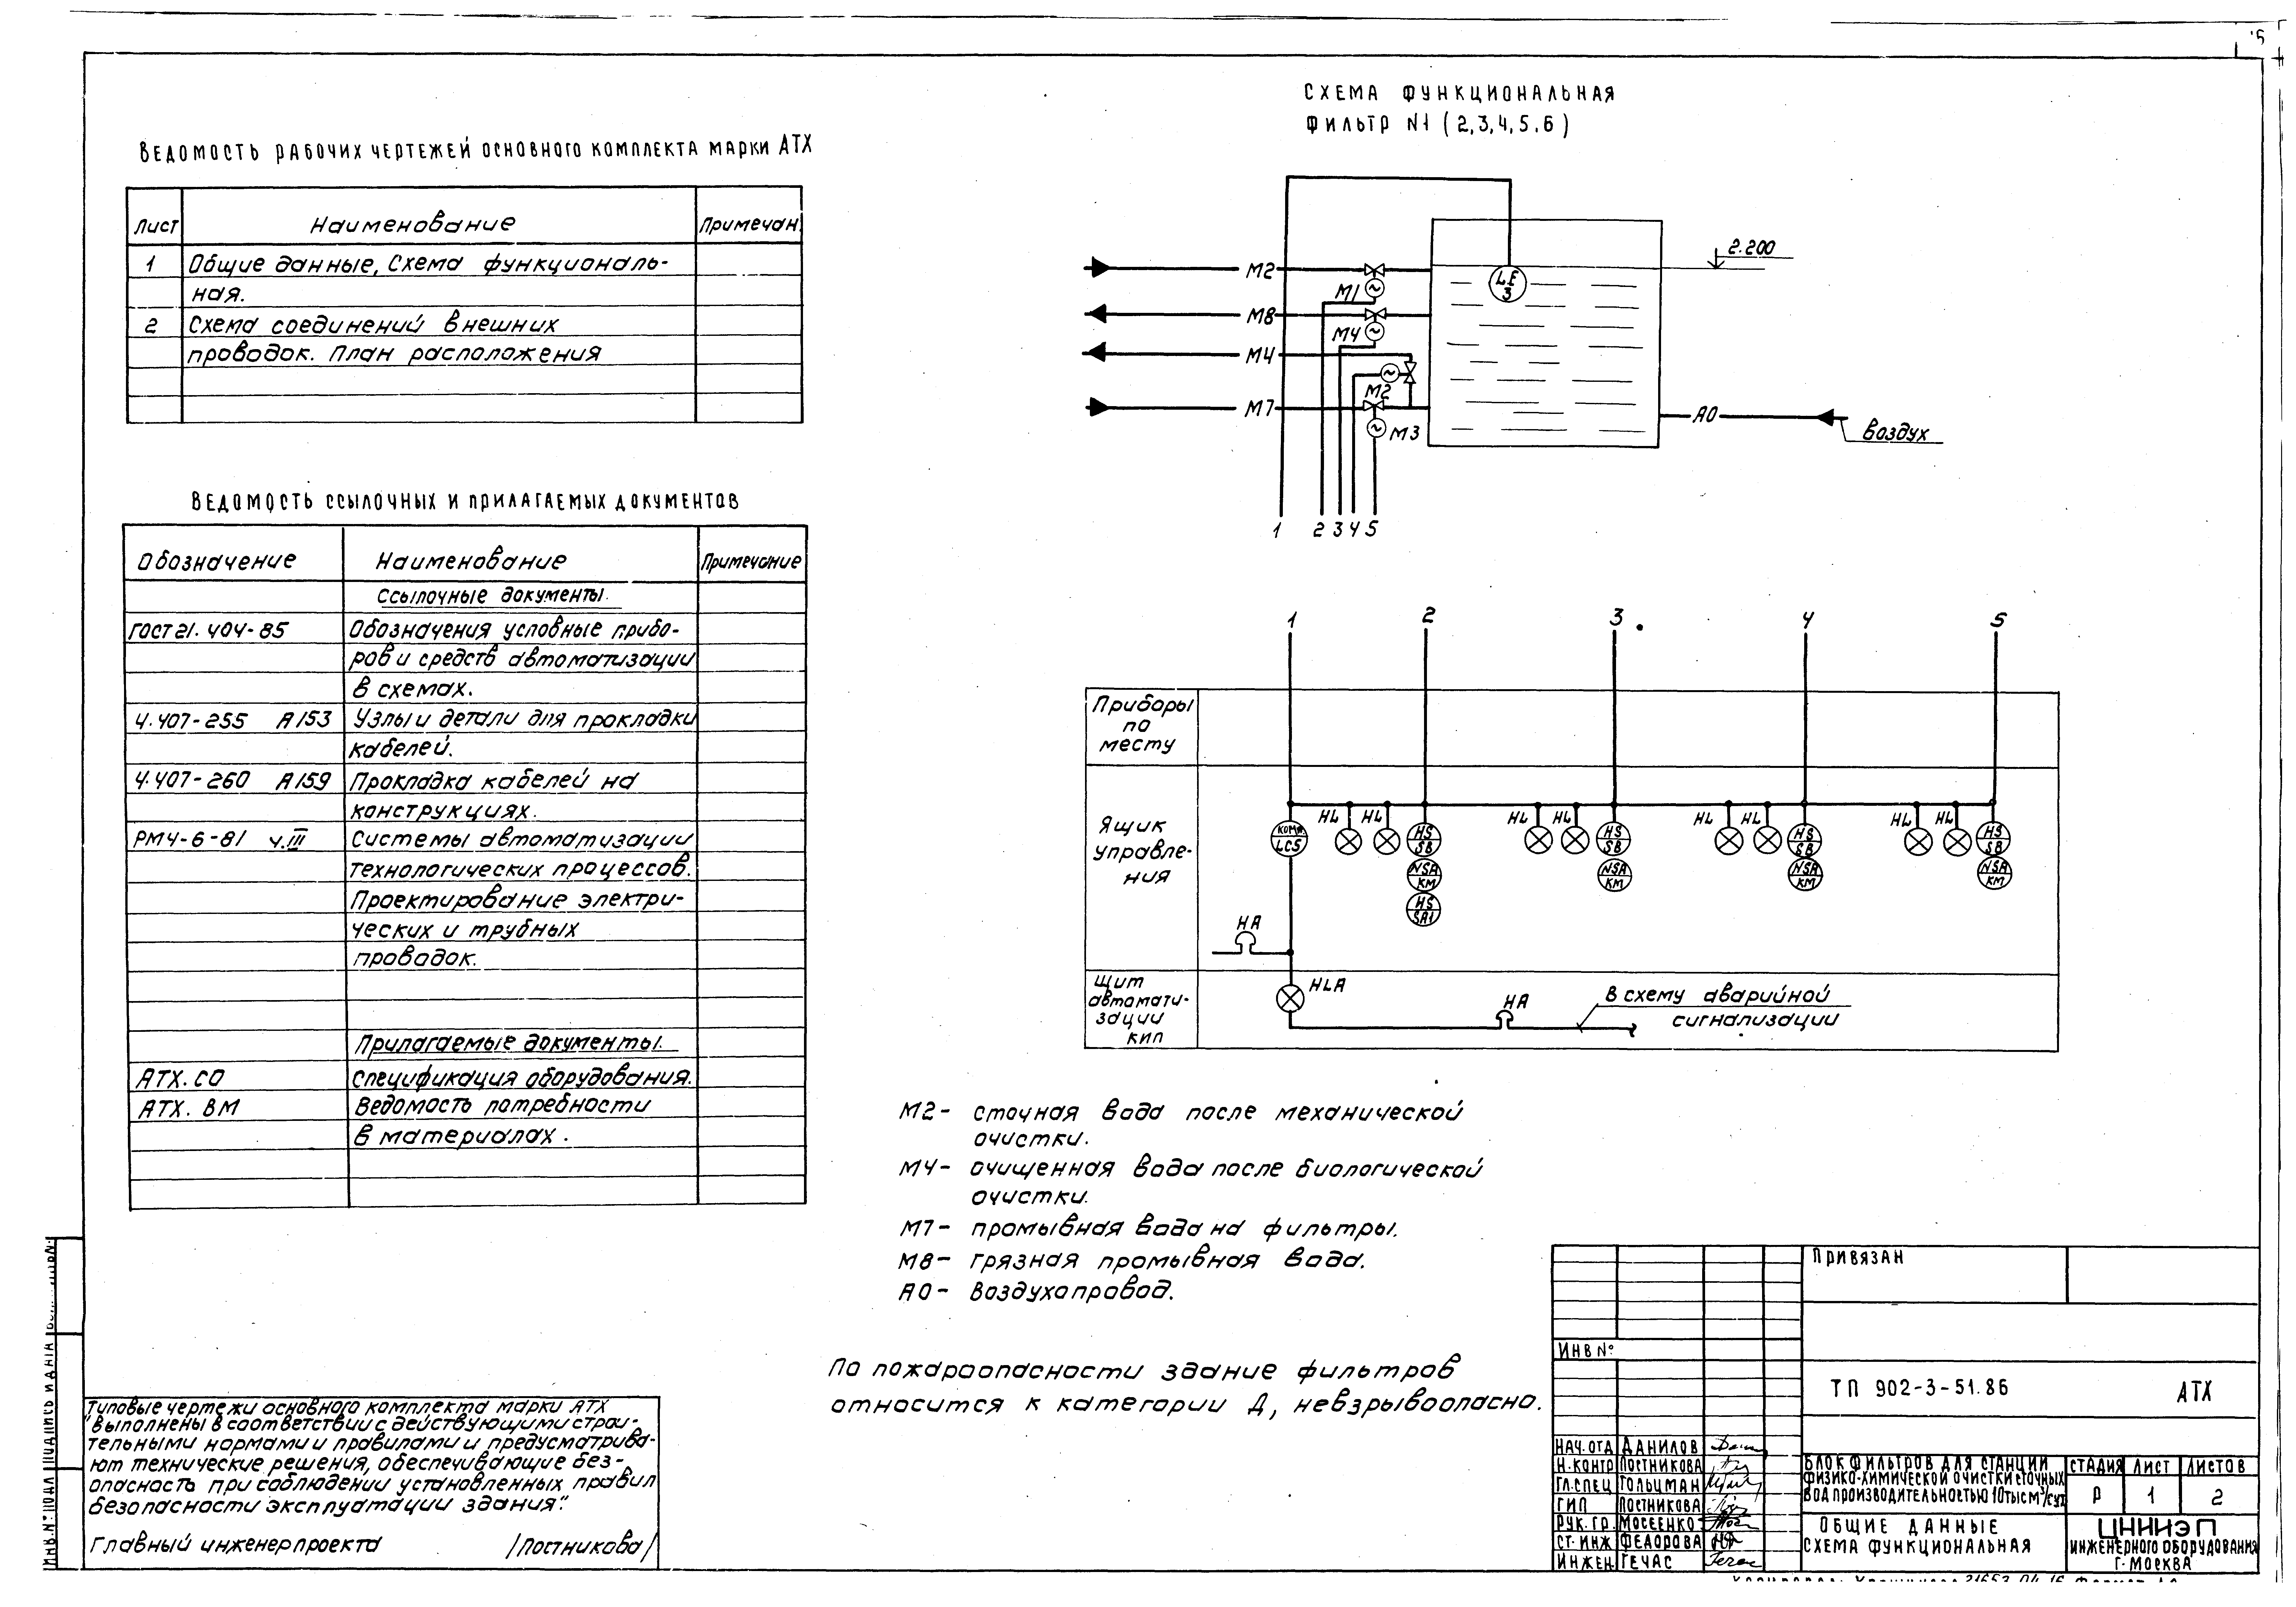 5
СХЕМА ФУНКЦИОНАЛЬНАЯ
ФИЛЬТР N1 (2,3,4,5,6)
ВЕДОМОСТЬ РАБОЧИХ ЧЕРТЕЖЕЙ ОСНОВНОГО КОМПЛЕКТА МАРКИ АТХ
Лист Наименование Примечан.
1 Общие данные, Схема функциональ-
ная.
2 Схема соединений внешних
проводок. План расположения
ВЕДОМОСТЬ ССЫЛОЧНЫХ И ПРИЛАГАЕМЫХ ДОКУМЕНТОВ
Обозначение Наименование Примечание
Ссылочные документы.
ГОСТ 21.404-85 Обозначения условные прибо-
ров и средств автоматизации
в схемах.
4.407-255 А153 Узлы и детали для прокладки
кабелей.
4.407-260 А159 Прокладка кабелей на
конструкциях.
РМ4-6-81 ч.III Системы автоматизации
технологических процессов.
Проектирование электри-
ческих и трубных
проводок.
Прилагаемые документы.
АТХ.СО Спецификация оборудования.
АТХ.ВМ Ведомость потребности
в материалах.
2.200
М2
М1
LE
3
М8
М4
М4
М2
М7
М3
А0
воздух
1 2 3 4 5
1 2 3 4 5
Приборы
по
месту
Ящик
управле-
ния
HL HL HL HL HL HL HL HL
КОМП.
LCS
HS
SB
HS
SB
HS
SB
HS
SB
NSA
КМ
NSA
КМ
NSA
КМ
NSA
КМ
HS
SA1
НА
Щит
автомати-
зации
КИП
HLA
НА
в схему аварийной
сигнализации
М2- сточная вода после механической
очистки.
М4- очищенная вода после биологической
очистки.
М7- промывная вода на фильтры.
М8- грязная промывная вода.
А0- воздухопровод.
По пожароопасности здание фильтров
относится к категории Д, невзрывоопасно.
Типовые чертежи основного комплекта марки АТХ
"выполнены в соответствии с действующими строи-
тельными нормами и правилами и предусматрива-
ют технические решения, обеспечивающие без-
опасность при соблюдении установленных правил
безопасности эксплуатации здания".
Главный инженер проекта /Постникова/
ИНВ.№ ПОДЛ ПОДПИСЬ И ДАТА
ПРИВЯЗАН
ИНВ №
ТП 902-3-51.86 АТХ
НАЧ.ОТД ДАНИЛОВ
Н.КОНТР ПОСТНИКОВА
ГЛ.СПЕЦ ГОЛЬЦМАН
ГИП ПОСТНИКОВА
РУК.ГР. МОСЕЕНКО
СТ.ИНЖ ФЕДОРОВА
ИНЖЕН. ГЕЧАС
БЛОК ФИЛЬТРОВ ДЛЯ СТАНЦИИ
ФИЗИКО-ХИМИЧЕСКОЙ ОЧИСТКИ СТОЧНЫХ
ВОД ПРОИЗВОДИТЕЛЬНОСТЬЮ 10 ТЫС М³/СУТ
СТАДИЯ ЛИСТ ЛИСТОВ
Р 1 2
ОБЩИЕ ДАННЫЕ
СХЕМА ФУНКЦИОНАЛЬНАЯ
ЦНИИЭП
ИНЖЕНЕРНОГО ОБОРУДОВАНИЯ
Г. МОСКВА